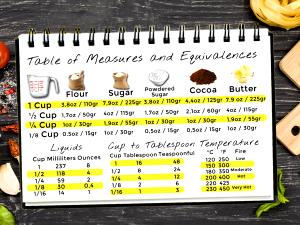 Table of Measures and Equivalences
Flour Sugar Powdered Sugar Cocoa Butter
1 Cup 3.8oz / 110gr 7.9oz / 225gr 3.8oz / 110gr 4.4oz / 125gr 7.9 oz / 225gr
½ Cup 1.7oz / 50gr 4oz / 115gr 1.7oz / 50gr 2.1oz / 60gr 4oz / 115gr
¼ Cup 1oz / 30gr 1.9oz / 55gr 1oz / 30gr 1oz / 30gr 1.9oz / 55gr
1/8 Cup 0.5oz / 15gr 1oz / 30gr 0.5oz / 15gr 0.5oz / 15gr 1oz / 30gr
Liquids Cup to Tablespoon Temperature
Cup Milliliters Ounces Cup Tablespoon Teaspoonful °C °F Fire
1 237 8 1 16 48 120 250 Low
1/2 118 4 1/2 8 24 150 300
1/4 59 2 1/4 4 12 180 350 Moderate
1/8 30 0.4 1/8 2 6 200 400 Hot
1/16 14 1 1/16 1 3 220 425
230 450 Very Hot